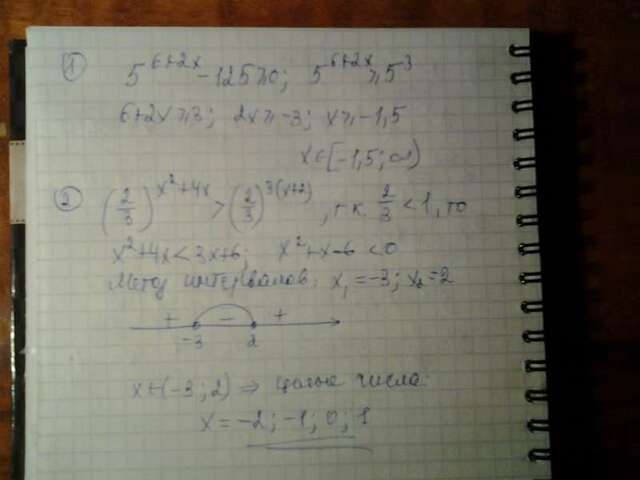 ① 5^(6+2x) - 125 ⩾ 0; 5^(6+2x) ⩾ 5^3
6+2x ⩾ 3; 2x ⩾ -3; x ⩾ -1,5
x ∈ [-1,5; ∞)
② (2/3)^(x²+4x) > (2/3)^(3(x+2)), т.к. 2/3 < 1, то
x²+4x < 3x+6; x²+x-6 < 0
Метод интервалов: x₁ = -3; x₂ = 2
+ - +
-3 2
x ∈ (-3; 2) ⇒ целые числа:
x = -2; -1; 0; 1